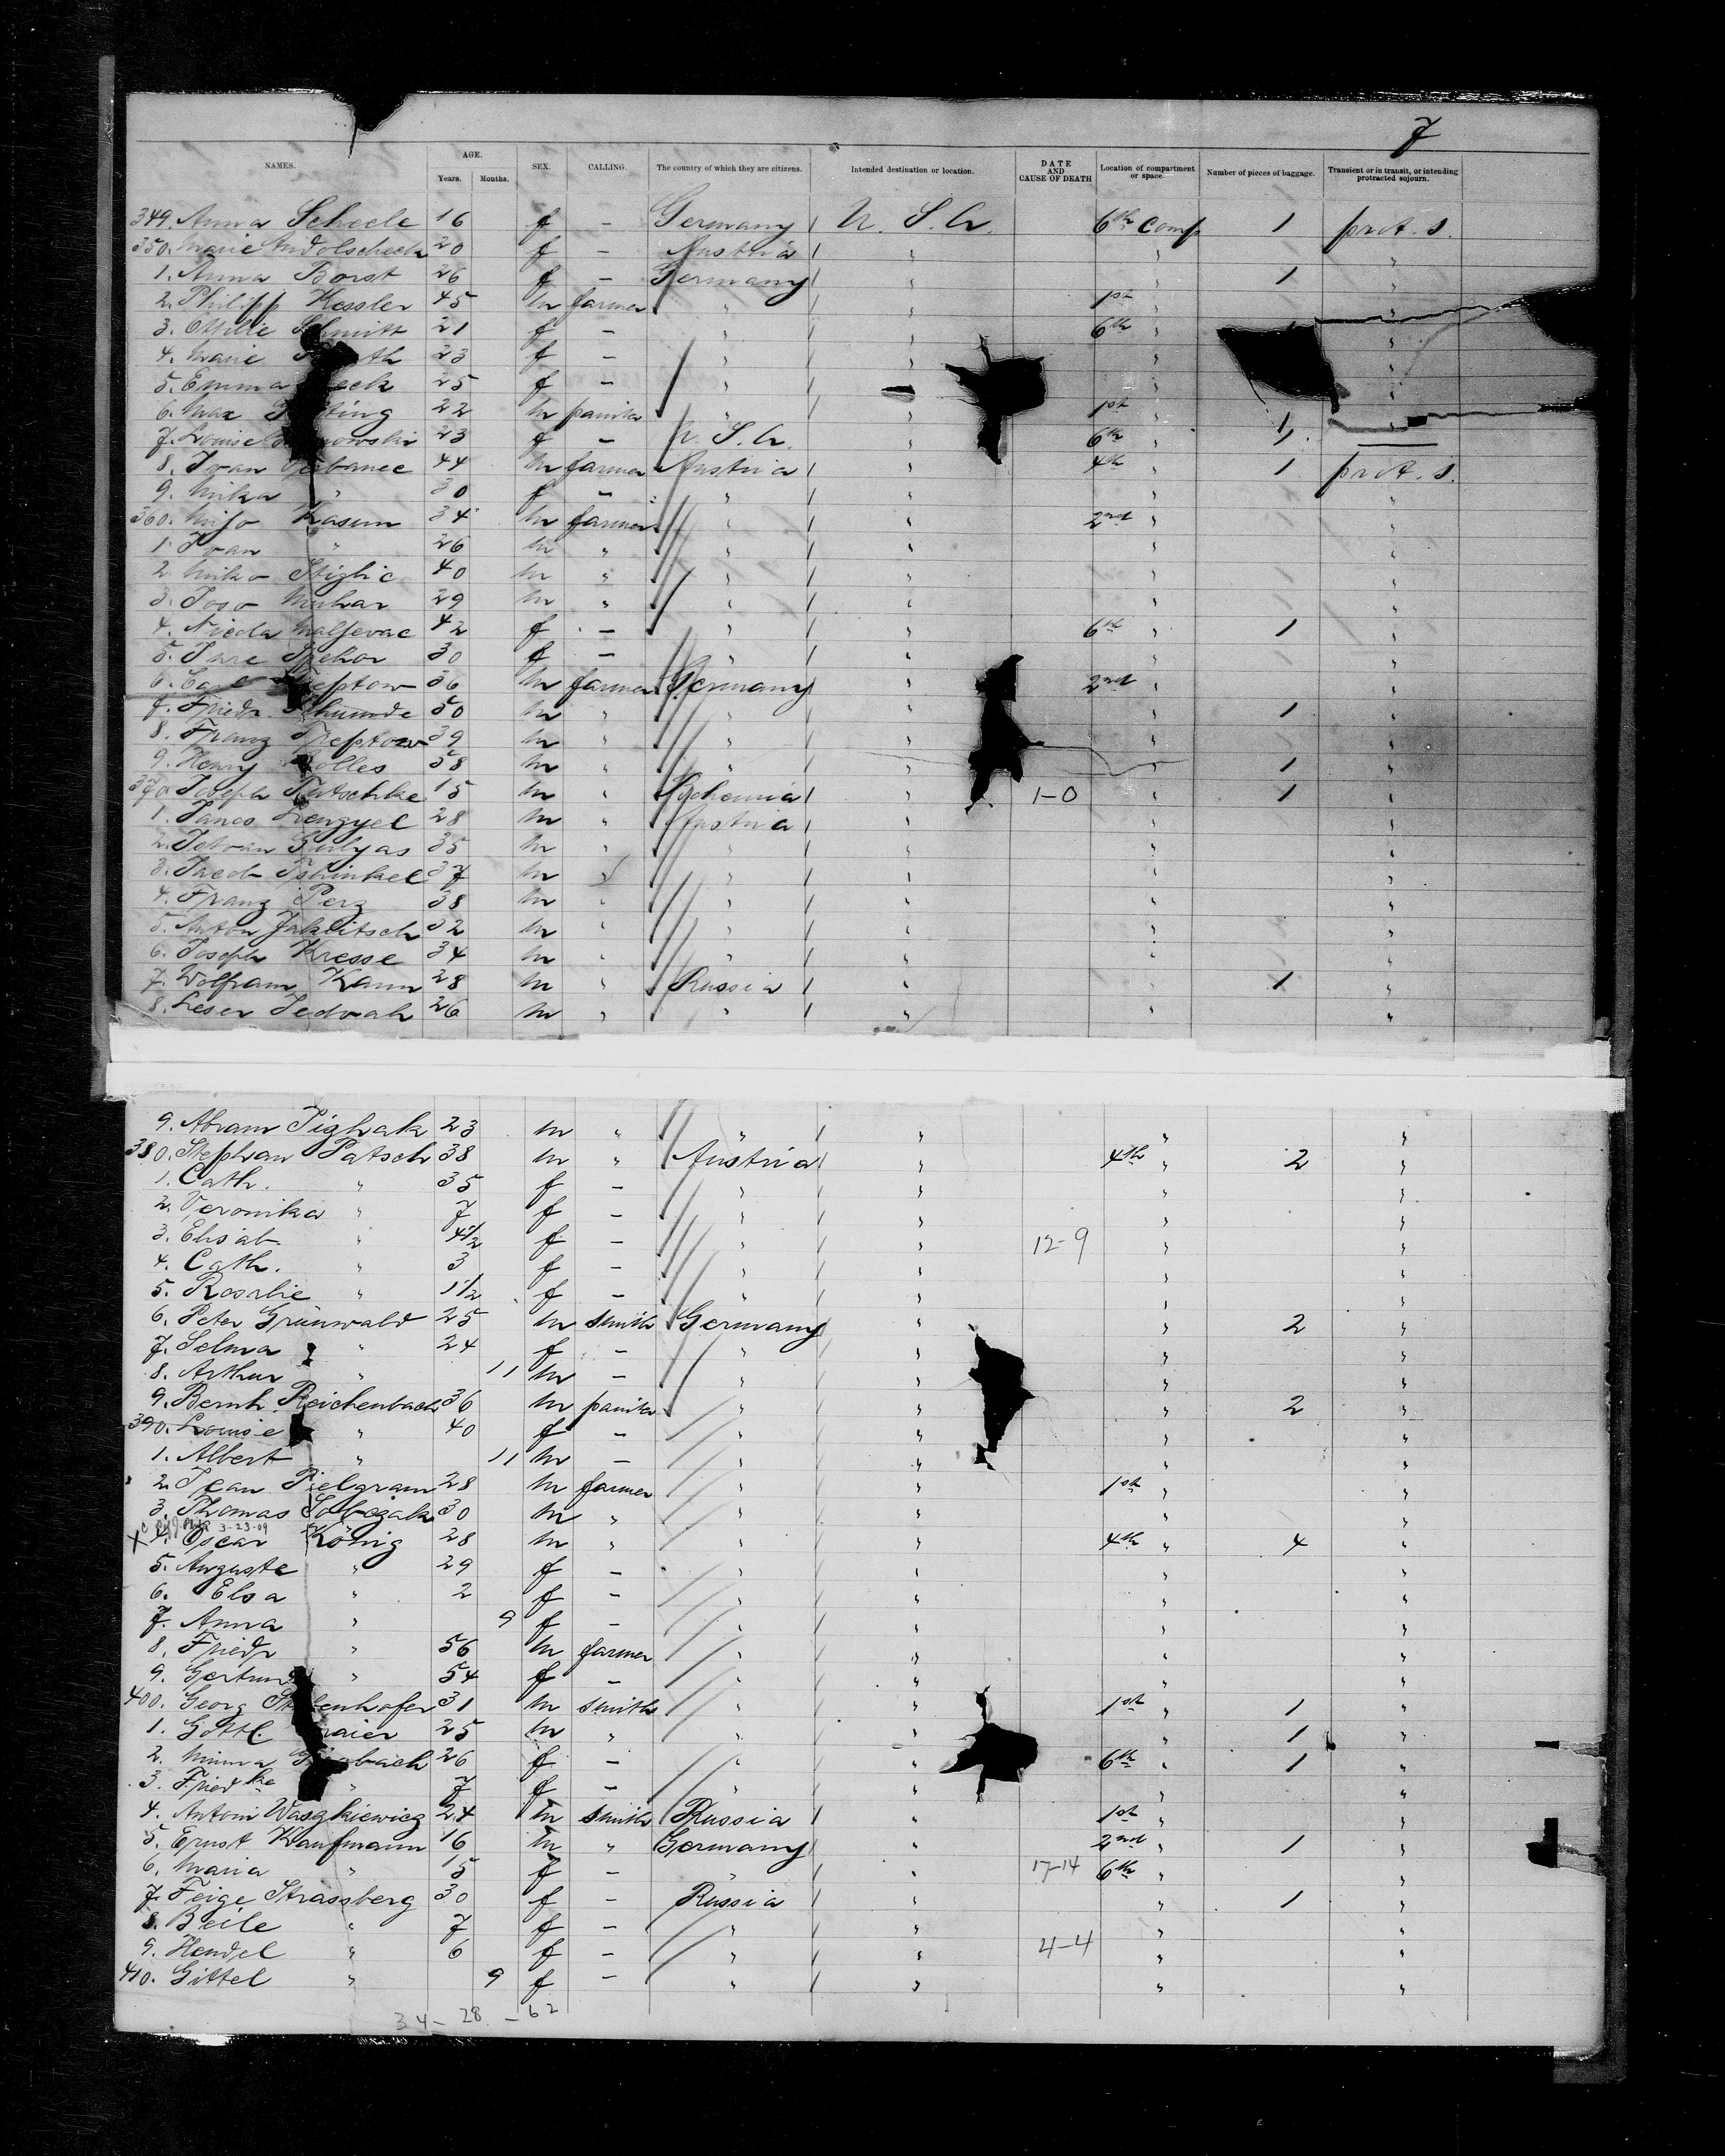 7
NAMES. AGE. Years. Months. SEX. CALLING. The country of which they are citizens. Intended destination or location. DATE AND CAUSE OF DEATH Location of compartment or space. Number of pieces of baggage. Transient or in transit, or intending protracted sojourn.
349. Anna Scheele 16 f — Germany U. S. A. 6th comp 1 prot. s.
350. Marie 20 f — Austria " " "
1. Anna Borst 26 f — Germany " " 1 "
2. Philipp Kessler 45 m farmer " " 1st " "
3. Ottilie Schmitt 21 f — " " 6th " "
4. Marie 23 f — " " " "
5. Emma 25 f — " " "
6. Max 22 m " " 1st " 1 "
7. Louise 23 f — U. S. A. " 6th " 1
8. Ivan 44 m farmer Austria " 4th " 1 prot. s.
9. Mika " 30 f — " " " "
360. Mijo Kasum 34 m farmer " " 2nd " "
1. Ivan " 26 m " " " " "
2. Miko Stiglic 40 m " " " " "
3. Joso Muhar 29 m " " " " "
4. Nicola Maljevac 42 f — " " 6th " 1 "
5. Jure 30 f — " " " "
6. Carl Treptow 36 m farmer Germany " 2nd " "
7. Friedr. 50 m " " " " 1 "
8. Franz Treptow 39 m " " " " "
9. Henry 58 m " " " " 1 "
370. Joseph Tatschke 15 m " Bohemia " 1-0 " 1 "
1. Janos Lengyel 28 m " Austria " " "
2. Istvan Gulyas 35 m " " " " "
3. Jacob Tschinkel 37 m " " " " "
4. Franz Perz 38 m " " " " "
5. Anton Jaklitsch 32 m " " " " "
6. Joseph Kresse 34 m " " " " "
7. Wolfram Kann 28 m " Russia " " 1 "
8. Leser 26 m " " " "
9. Abram 23 m " " " " "
380. Stephan Patsch 38 m " Austria " 4th " 2 "
1. Cath. " 35 f — " " " "
2. Veronika " 7 f — " " " "
3. Elisab. " 4 1/2 f — " " 12-9 " "
4. Cath. " 3 f — " " " "
5. Rosalie " 1 1/2 f — " " " "
6. Peter Grünwald 25 m smith Germany " " 2 "
7. Selma " 24 f — " " " "
8. Arthur " 11 m — " " " "
9. Bernh. Reichenbach 36 m " " " 2 "
390. Louise " 40 f — " " " "
1. Albert " 11 m — " " " "
2. Jean Pielgram 28 m farmer " " 1st " "
3. Thomas Sobczak 30 m " " " " "
3-23-09
X 4. Oscar König 28 m " " " 4th " 4 "
5. Auguste " 29 f — " " " "
6. Elsa " 2 f — " " " "
7. Anna " 9 f — " " " "
8. Friedr " 56 m farmer " " " "
9. Gertrud " 54 f — " " " "
400. Georg 31 m smith " " 1st " 1 "
1. Gottl 25 m " " " " 1 "
2. Minna 26 f — " " 6th " 1 "
3. Friedke " 7 f — " " " "
4. Antoni Waszkiewicz 24 m smith Russia " 1st " "
5. Ernst Kaufmann 16 m " Germany " 2nd " 1 "
6. Maria " 15 f — " " 17-14 6th " "
7. Feige Strassberg 30 f — Russia " " 1 "
8. Beile " 7 f — " " " "
9. Hendel " 6 f — " " 4-4 " "
410. Gittel " 9 f — " " " "
34 - 28 - 62